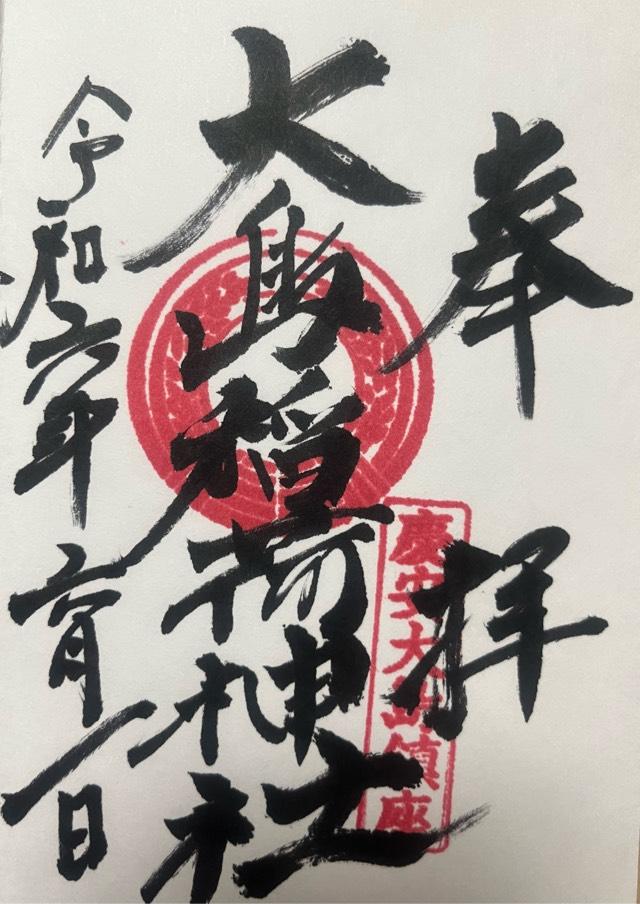 奉拝
慶安大島鎮座
大島稲荷神社
令和六年六月一日